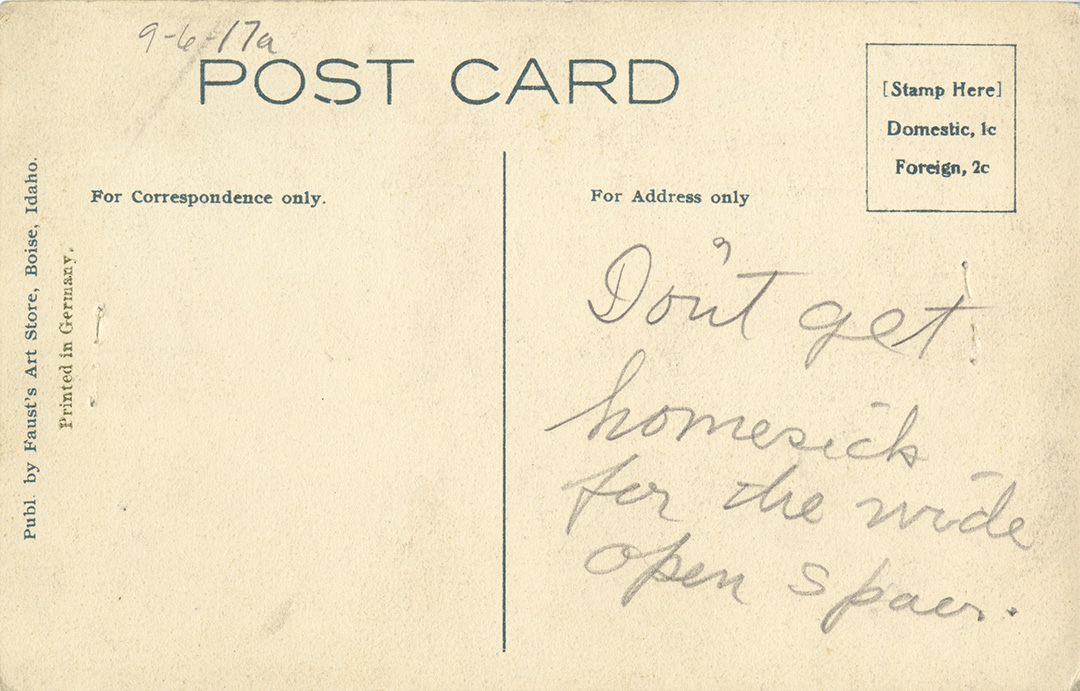 9-6-17a
POST CARD
[Stamp Here]
Domestic, 1c
Foreign, 2c
For Correspondence only.
For Address only
Publ. by Faust's Art Store, Boise, Idaho.
Printed in Germany.
Don't get
homesick
for the wide
open spaces.